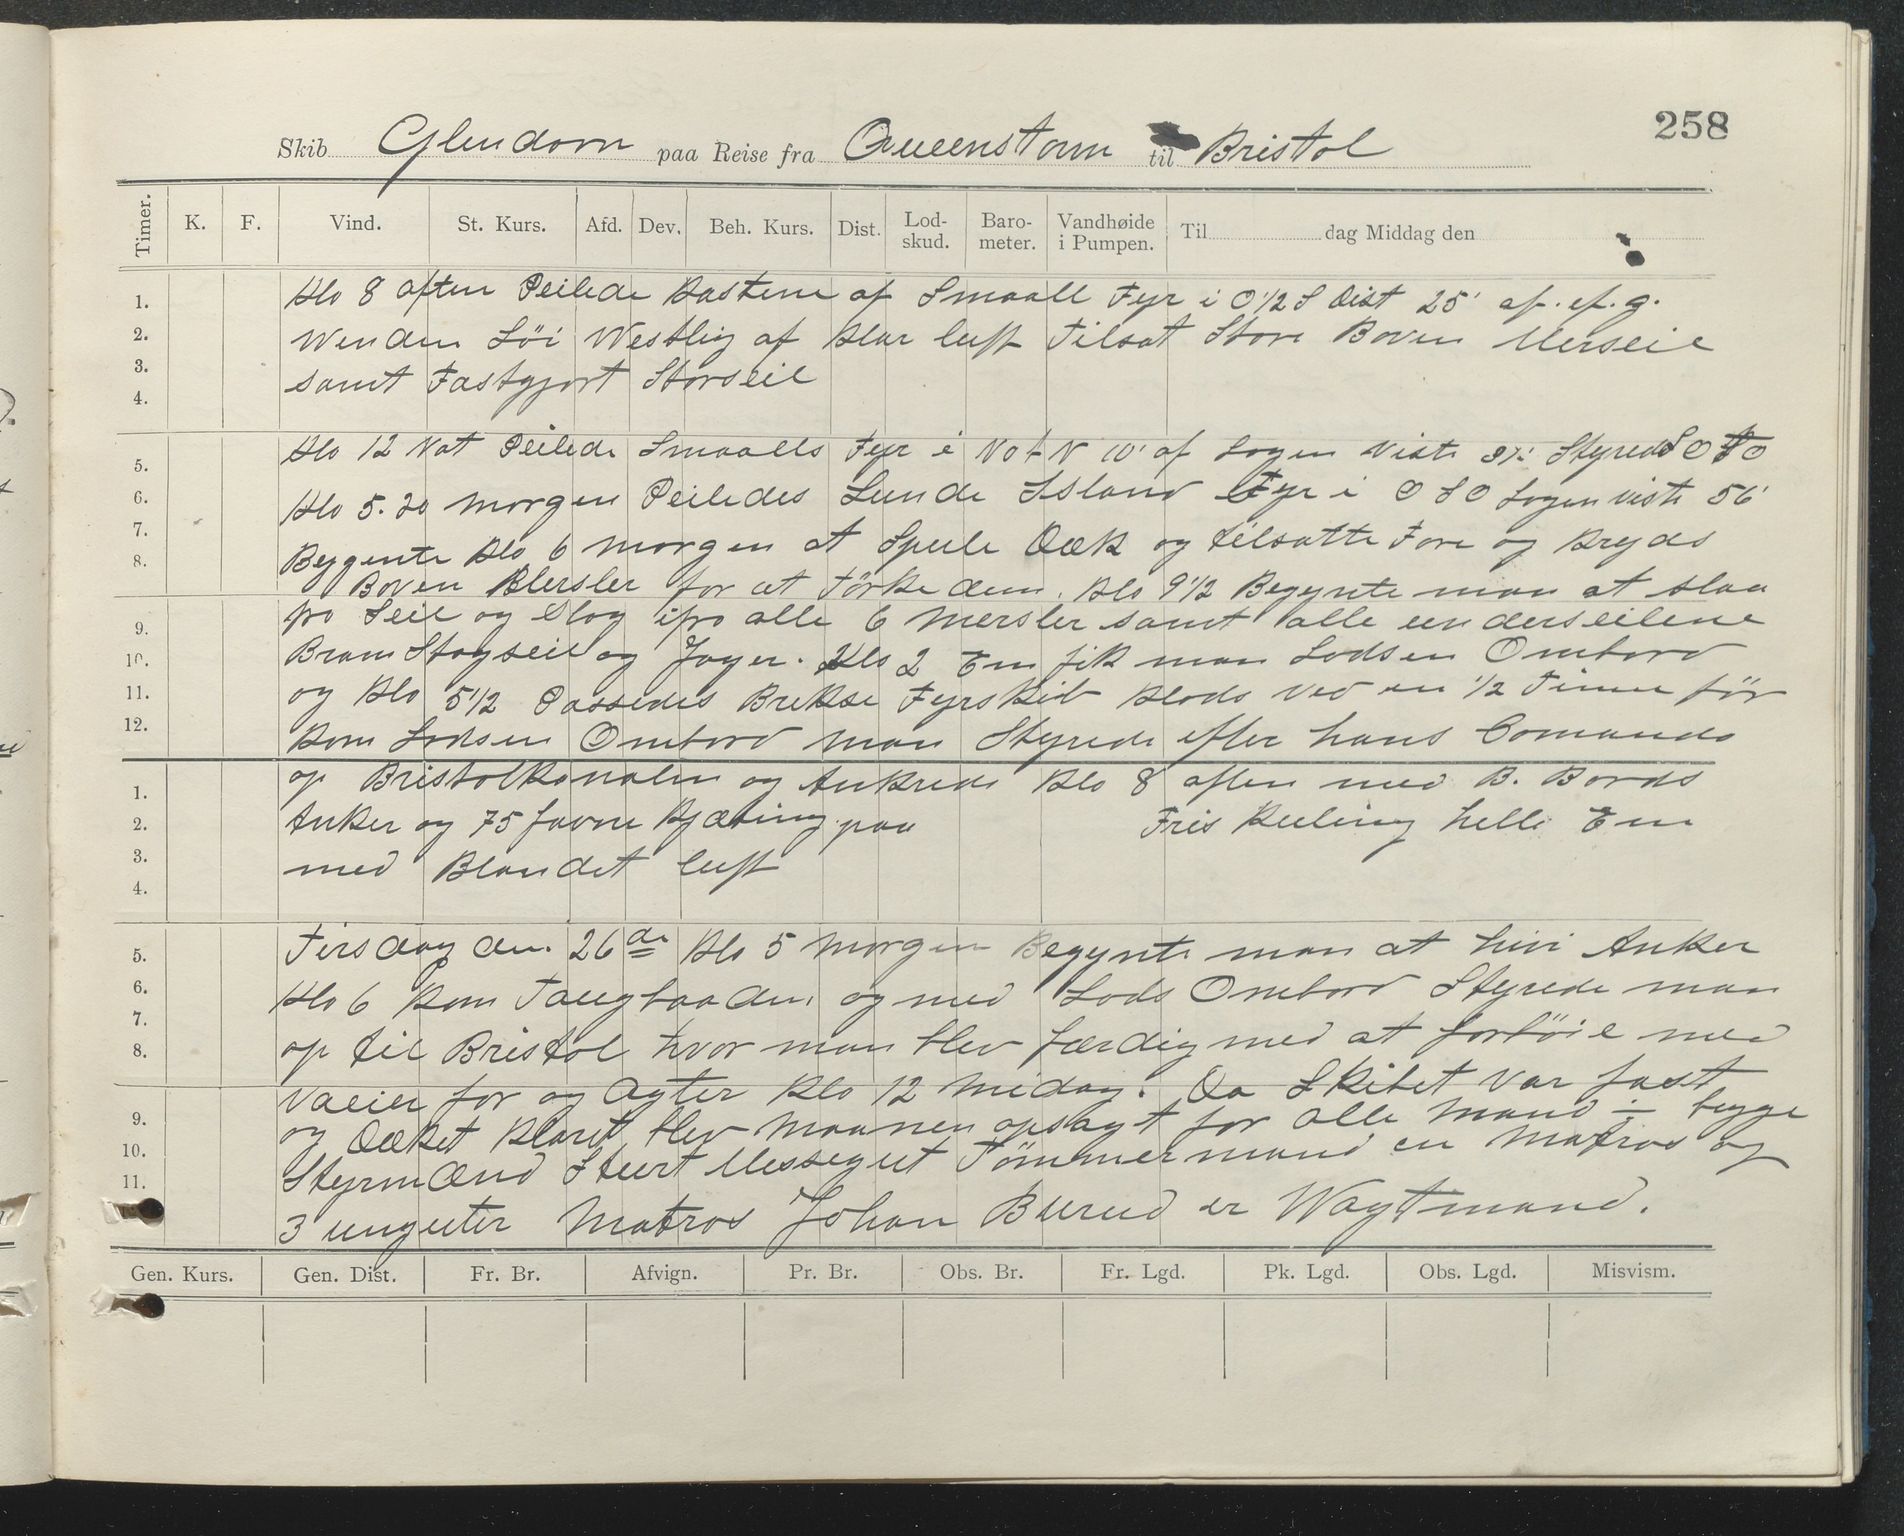 258
Skib Glendoon paa Reise fra Queenstown til Bristol
Timer. K. F. Vind. St. Kurs. Afd. Dev. Beh. Kurs. Dist. Lod-skud. Baro-meter. Vandhøide i Pumpen. Til dag Middag den
1. Klo 8 aften Peilede Kastene af Smaall Fyr i O 1/2 S Dist 25' af. ef. g.
2. Wenden Löi Westlig af Klar luft Tilsat Store Boven Merseil
3. samt Fastgjort Storseil
4.
5. Klo 12 Nat Peilede Smaalls Fyr i No t N 10' af Logen viste Styrede S O t O
6. Klo 5.20 morgen Peiledes Lunde Island Fyr i O S O Logen viste 56'
7. Begynte Klo 6 morgen at Spule Dæk og tilsatte Fore og Kryds
8. Boven Mersler for at Törke dem. Klo 9 1/2 Begynte man at slaa
9. fra Seil og slog ifra alle 6 Mersler samt alle underseilene
10. Bram Stagseil og Jager. Klo 2 Em fik man Lodsen Ombord
11. og Klo 5 1/2 Passedes Brekse Fyrskib Klods ved en 1/2 Time før
12. Kom Lodsen Ombord man Styrede efter hans Comando
1. op Bristolkanalen og Ankrede Klo 8 aften med B. Bords
2. Anker og 75 favne Kjæting paa Fris Kuling hele Em
3. med Blandet luft
4.
5. Tirsdag den 26de Klo 5 morgen Begynte man at hivi Anker
6. Klo 6 kom Taugbaaden og med Lods Ombord Styrede man
7. op til Bristol hvor man blev færdig med at fortöie med
8. vaeier for og Agter Klo 12 Midag. Da Skibet var fast
9. og Dækket Klaret blev Maanen opsagt for alle Mand ÷ begge
10. Styrmænd Stuert Messegut Tömmermand en Matros og
11. 3 ungutter Matros Johan Burud er Wagtmand.
Gen. Kurs. Gen. Dist. Fr. Br. Afvign. Pr. Br. Obs. Br. Fr. Lgd. Pk. Lgd. Obs. Lgd. Misvism.